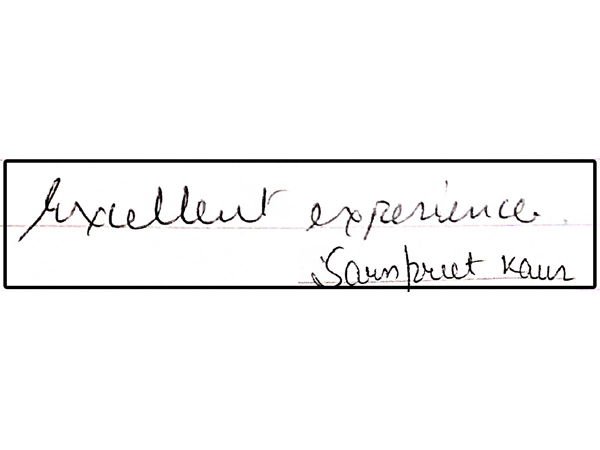 Excellent experience.
Sarnpreet Kaur